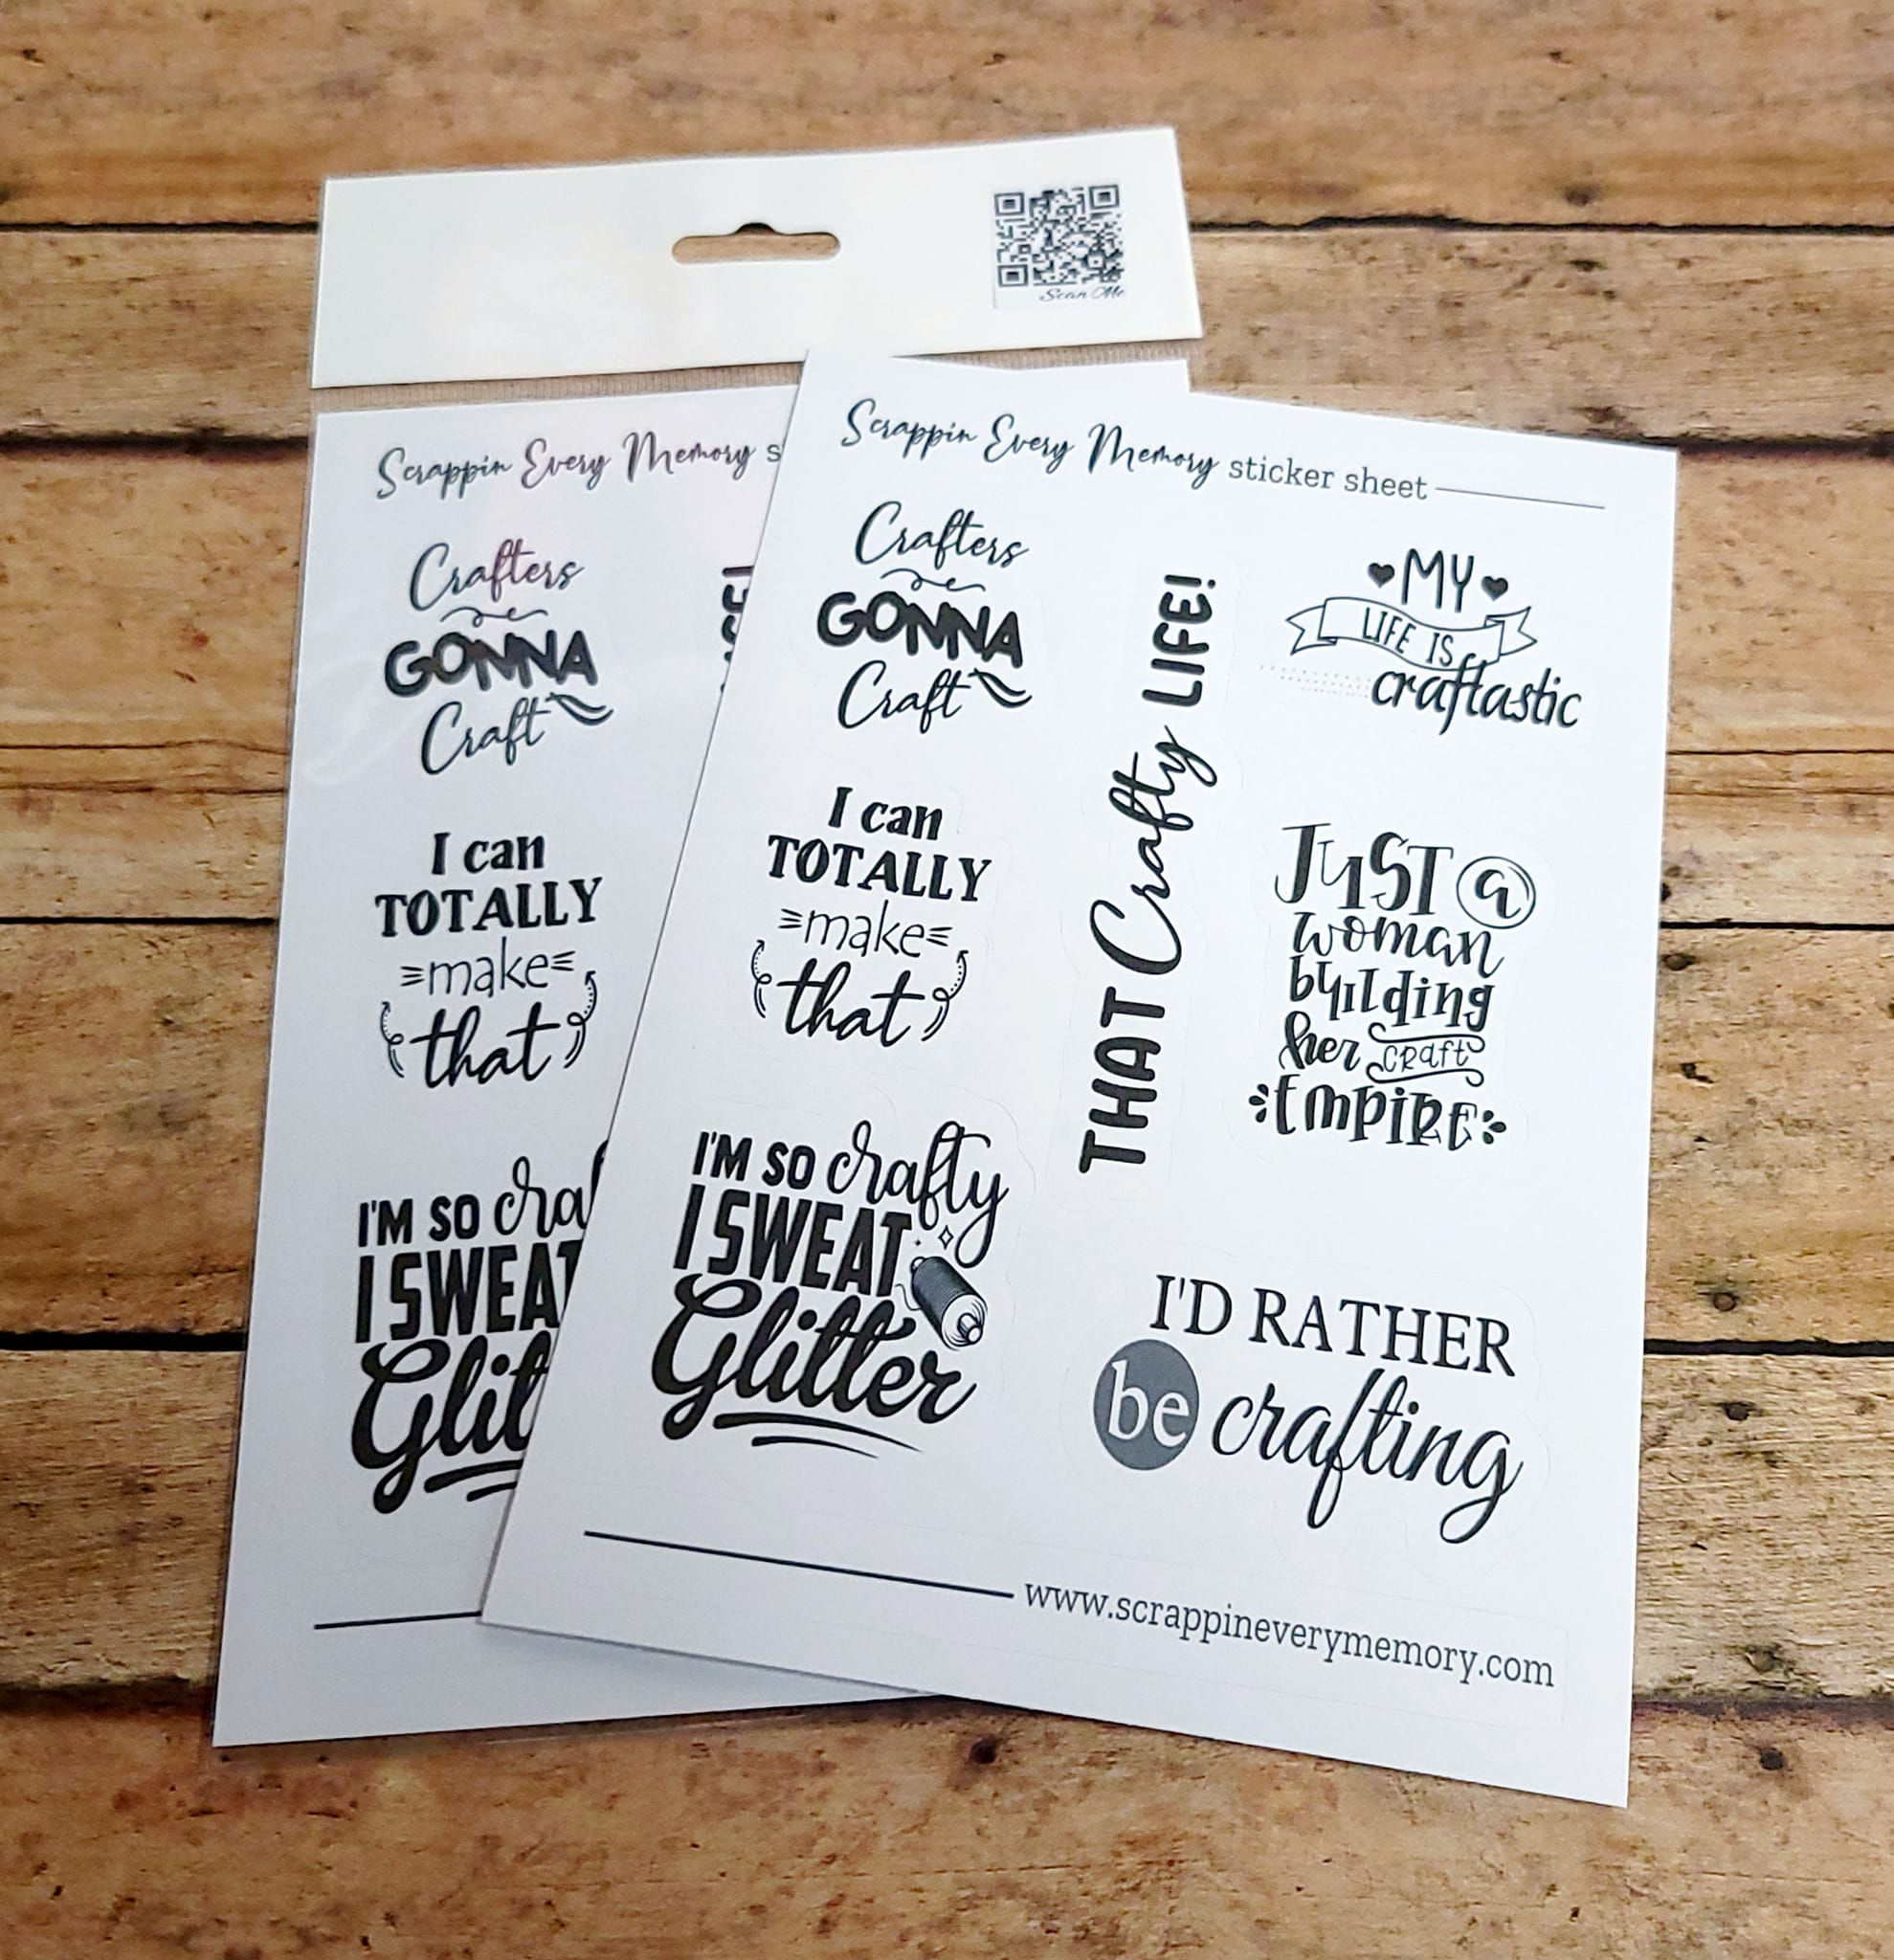 Scan Me
Scrappin Every Memory s
Crafters
GONNA
Craft
I can
TOTALLY
make
that
I'M SO craf
I SWEAT
Glit
LIFE!
Scrappin Every Memory sticker sheet
Crafters
GONNA
Craft
I can
TOTALLY
make
that
I'M SO crafty
I SWEAT
Glitter
THAT Crafty LIFE!
MY
LIFE IS
craftastic
JUST a
woman
building
her CRAFT
EMPIRE
I'D RATHER
be crafting
www.scrappineverymemory.com